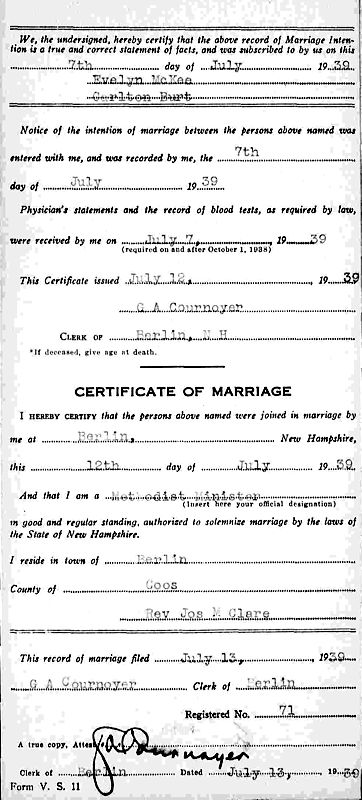 We, the undersigned, hereby certify that the above record of Marriage Inten-
tion is a true and correct statement of facts, and was subscribed to by us on this
7th day of July 1939
Evelyn McKee
Carlton Burt
Notice of the intention of marriage between the persons above named was
entered with me, and was recorded by me, the 7th
day of July 1939
Physician's statements and the record of blood tests, as required by law,
were received by me on July 7, 1939
(required on and after October 1, 1938)
This Certificate issued July 12, 1939
G A Cournoyer
CLERK OF Berlin, N H
*If deceased, give age at death.
CERTIFICATE OF MARRIAGE
I HEREBY CERTIFY that the persons above named were joined in marriage by
me at Berlin, New Hampshire,
this 12th day of July 1939
And that I am a Methodist Minister
(Insert here your official designation)
in good and regular standing, authorized to solemnize marriage by the laws of
the State of New Hampshire.
I reside in town of Berlin
County of Coos
Rev Jos M Clare
This record of marriage filed July 13, 1939
G A Cournoyer Clerk of Berlin
Registered No. 71
A true copy, Attest GA Cournoyer
Clerk of Berlin Dated July 13, 1939
Form V. S. 11